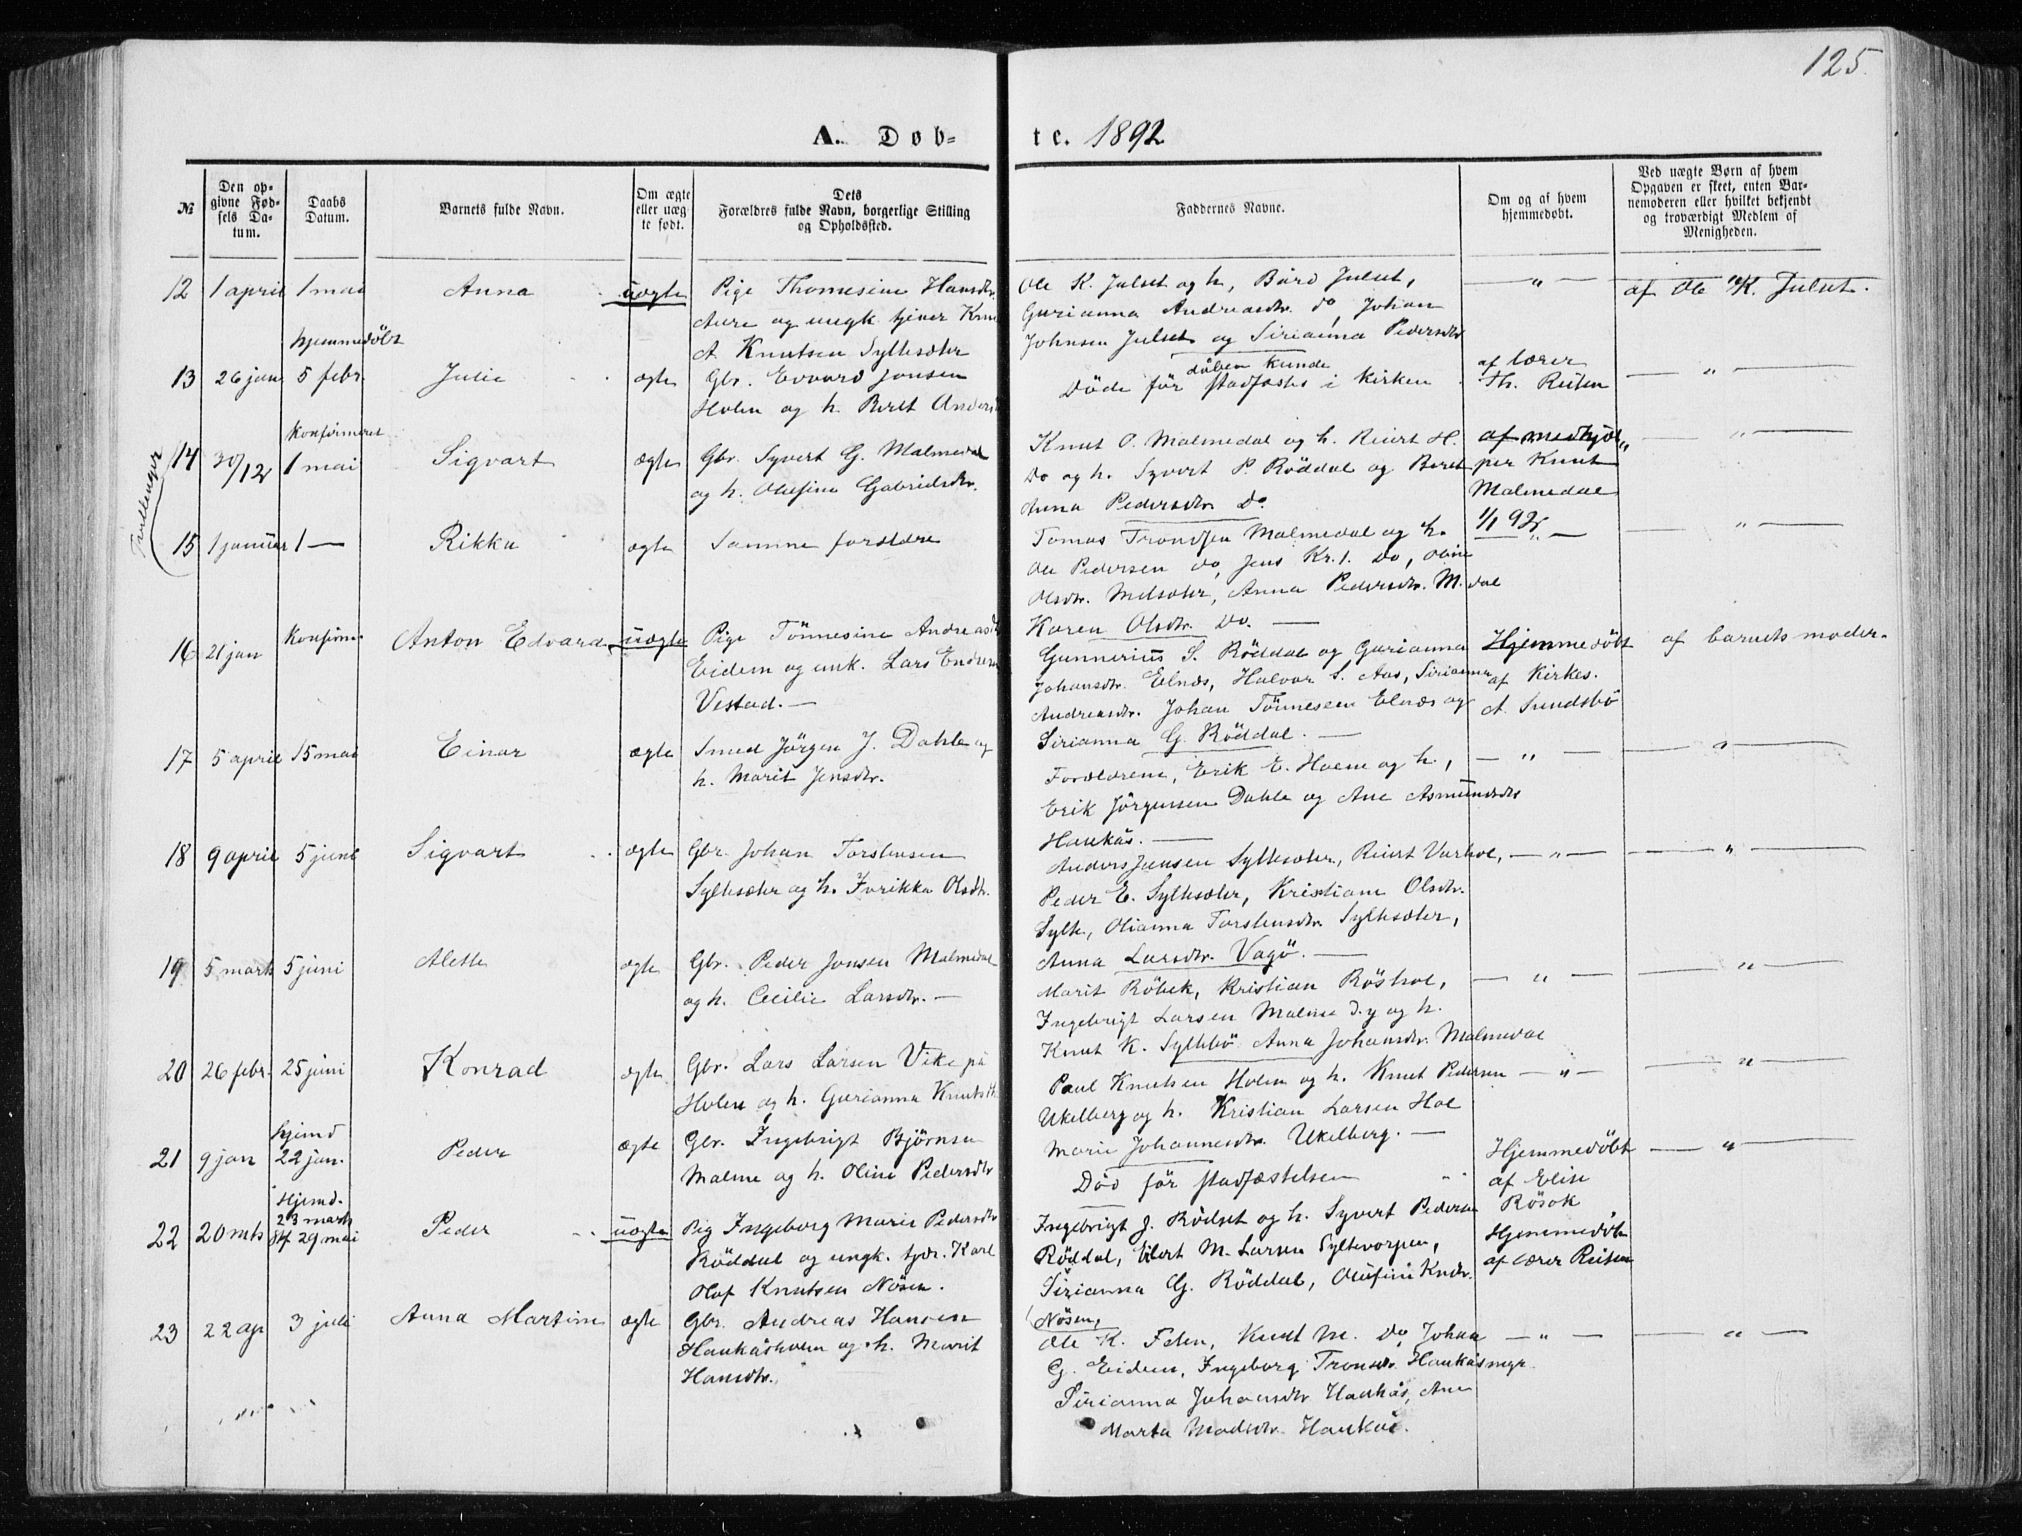 125.
A. Døb=
te. 1892
№
Den op=
givne Fød=
sels Da=
tum.
Daabs
Datum.
Barnets fulde Navn.
Om ægte
eller uæg=
te født.
Dets
Forældres fulde Navn, borgerlige Stilling
og Opholdssted.
Faddernes Navne.
Om og af hvem
hjemmedøbt.
Ved uægte Børn af hvem
Opgaven er skeet, enten Bar=
nemoderen eller hvilket bekjendt
og troværdigt Medlem af
Menigheden.
12 1 april 1 mai Anna uægte
Pige Thomesine Hansdtr.
Aure og ungk. tjener Knut
A Knutsen Syltesæter
Ole K. Julset og h, Bård Julset,
Gurianna Andreasdtr. do, Johan
Johnsen Julset og Sirianna Pedersdtr
— " —
af Ole K. Julset.
hjemmedöbt
13 26 jan 5 febr. Julie ægte
Gbr. Edvard Jonsen
Holen og h. Beret Anders
döben kunde
Döde för stadfæstes i kirken
af lærer
Th. Reiten
— " —
Tvillinger
konfirmeret
14 30/12 1 mai Sigvart ægte
Gbr. Syvert G. Malmedal
og h. Olufine Gabrielsdtr.
Knut P. Malmedal og h. Reiert H.
Do og h. Syvert P. Röddal og Beret
Anna Pedersdtr. Do.
af medhjæl
per Knut
Malmedal
1/1 92.
— " —
15 1 januar 1 — Rikka ægte
Samme forældre
Tomas Trondsen Malmedal og h.
Ole Pedersen do, Jens Kr. J. Do, Oline
Olsdtr. Melsæter, Anna Pedersdtr. M.dal
Karen Olsdtr. Do. —
—
— " —
16 21 jan Konfirm. Anton Edvard uægte
Pige Tönnesine Andreasdtr
Eidem og unk. Lars Endresen
Vestad. —
Gunnerius S. Röddal og Gurianna
Johansdtr. Elnæs, Halvor S. Aas, Sirianna
Andreasdtr. Johan Tönnesen Elnæs og
Sirianna G. Röddal. —
Hjemmedöbt
af Kirkes.
A. Sundsbö
af barnets moder.
17 5 april 15 mai Einar ægte
Smed Jörgen J. Dahle og
h. Marit Jensdtr.
Forældrene, Erik E. Holen og h,
Erik Jörgensen Dahle og Ane Asmundsdtr
Haukås. —
— " —
— " —
18 9 april 5 juni Sigvart ægte
Gbr. Johan Torstensen
Syltesæter og h. Fredrikka Olsdtr.
Anders Jensen Syltesæter, Reiert Varhol,
Peder E. Syltesæter, Kristiane Olsdtr.
Sylte, Olianna Torstensdtr. Syltesæter,
Anna Larsdtr. Vagö. —
— " —
— " —
19 5 marts 5 juni Alette ægte
Gbr. Peder Jonsen Malmedal
og h. Cecilie Larsdtr. —
Marit Röbek, Kristian Röshol,
Ingebrigt Larsen Malme d.y og h.
Knut K. Syltebö Anna Johansdtr. Malmedal
— " —
— " —
20 26 febr. 25 juni Konrad ægte
Gbr. Lars Larsen Vike på
Holen og h. Gurianna Knutsdtr.
Paul Knutsen Holen og h. Knut Pedersen
Ukelberg og h. Kristian Larsen Hol
Marie Johannesdtr. Ukelberg. —
— " —
— " —
hjemd
21 9 jan 22 jan. Peder ægte
Gbr. Ingebrigt Björnsen
Malme og h. Oline Pedersdtr
Död för stadfæstelsen
Hjemmedöbt
af Elise
Rösok
— " —
Hjemd.
23 marts
22 20 mts St 29 mai Peder uægte
Pig Ingeborg Marie Pedersdtr
Röddal og ungk. tjen. Karl
Olof Knutsen Nösen.
Ingebrigt J. Rödset og h. Syvert Pedersen
Röddal, Eilert M. Larsen Syltevorpen,
Sirianna G. Röddal, Olufine Knudtr.
Nösen,
Hjemmedöbt
af lærer Reiten
23 22 ap 3 juli Anna Martine ægte
Gbr. Andreas Hansen
Haukåsholen og h. Merit
Hansdtr.
Ole K. Tolen, Knut M. Do, Johan
G. Eidem, Ingeborg Tronsdr. Haukåsmyr
Sirianna Johansdtr Haukås, Ane
Marta Madsdtr. Haukås.
— " —
— " —